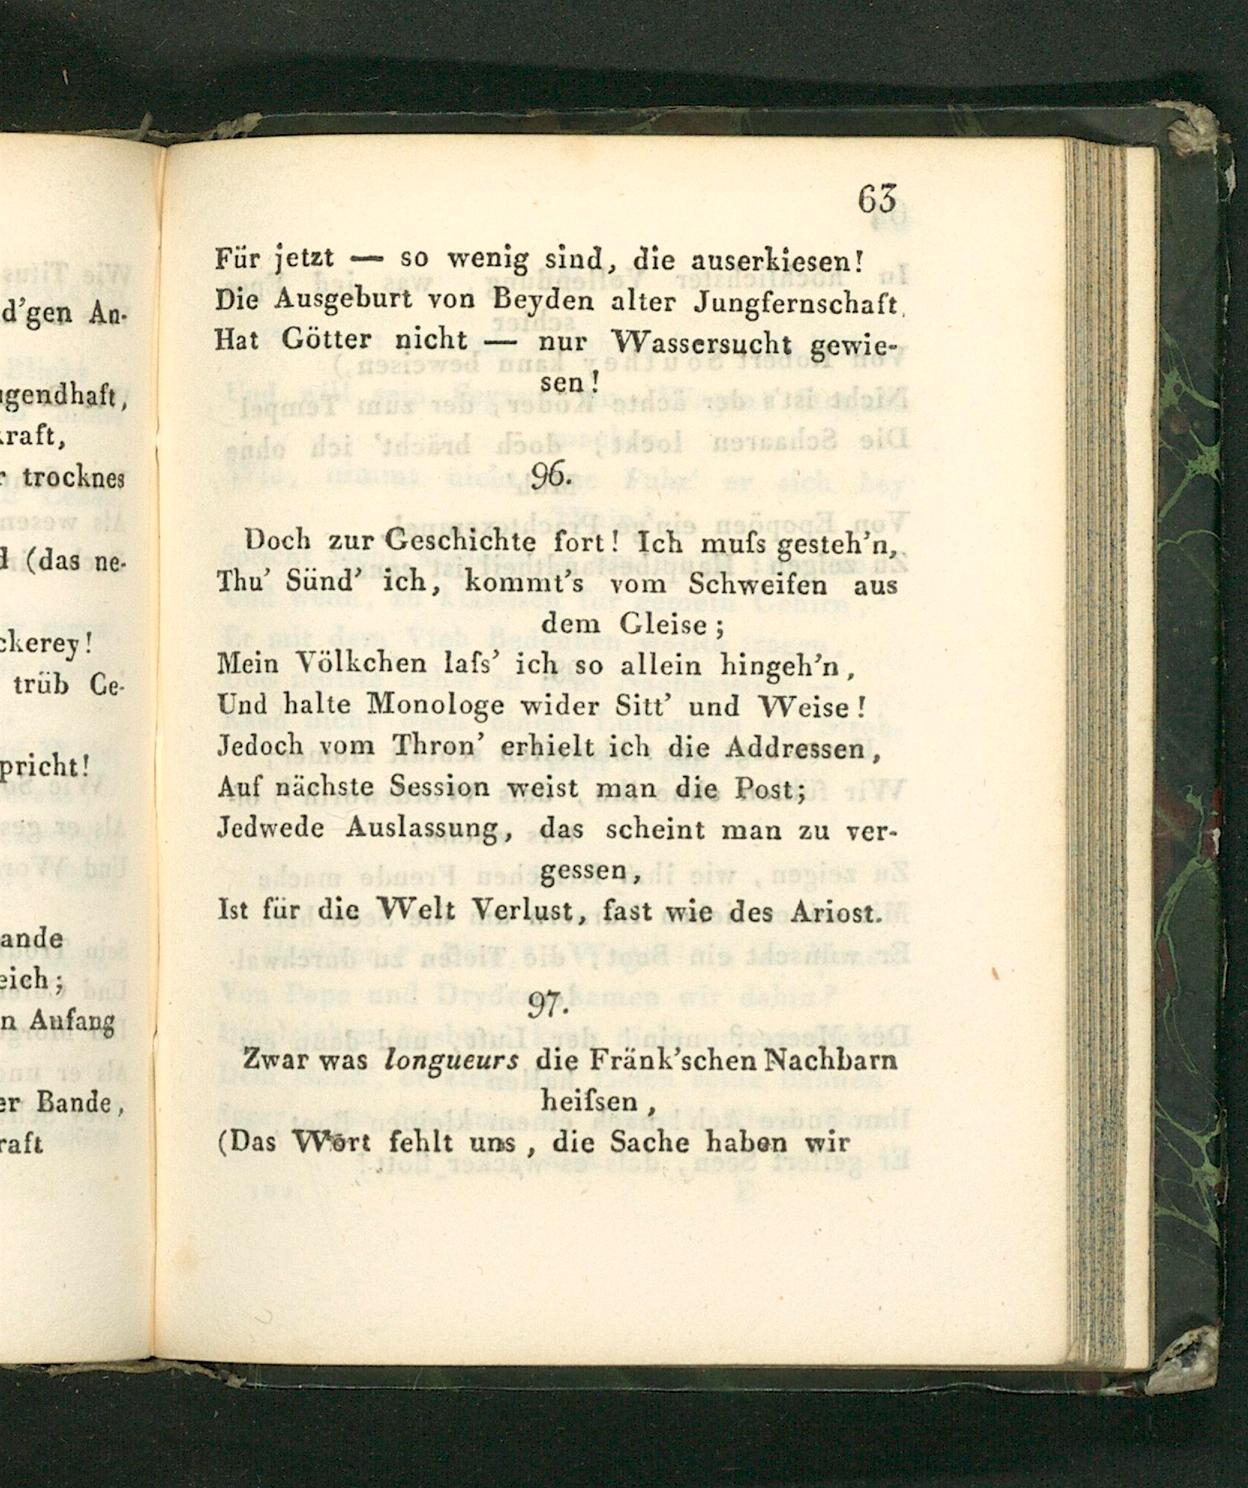 63
Für jetzt — so wenig sind, die auserkiesen!
Die Ausgeburt von Beyden alter Jungfernschaft
Hat Götter nicht — nur Wassersucht gewie-
sen!
96.
Doch zur Geschichte fort! Ich muſs gesteh'n,
Thu' Sünd' ich, kommt's vom Schweifen aus
dem Gleise;
Mein Völkchen laſs' ich so allein hingeh'n,
Und halte Monologe wider Sitt' und Weise!
Jedoch vom Thron' erhielt ich die Addressen,
Auf nächste Session weist man die Post;
Jedwede Auslassung, das scheint man zu ver-
gessen,
Ist für die Welt Verlust, fast wie des Ariost.
97.
Zwar was longueurs die Fränk'schen Nachbarn
heiſsen,
(Das Wort fehlt uns, die Sache haben wir
d'gen An-
gendhaft,
raft,
r trocknes
d (das ne-
ckerey!
trüb Ge-
pricht!
ande
eich;
n Anfang
er Bande,
raft